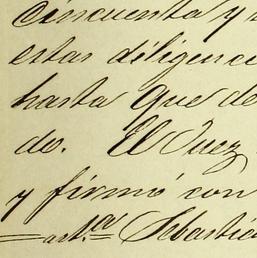 cincuenta y
estas diligenci
hasta que de
do. El Juez
y firmó con
Sebastiá